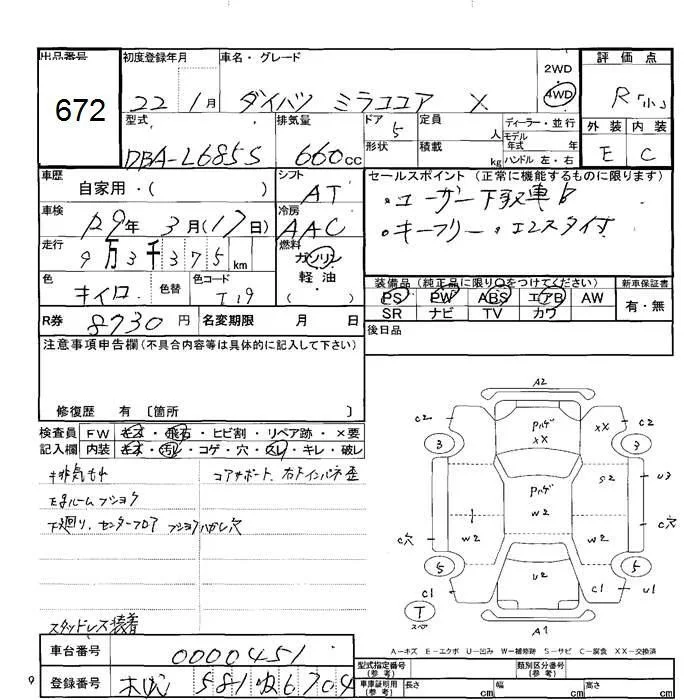 出品番号 初度登録年月 車名・グレード 2WD 評価点
672 22 1月 ダイハツ ミラココア X 4WD R「小」
型式 排気量 ドア 5 定員 人 ディーラー・並行 外装 内装
DBA-L685S 660cc 形状 積載 kg モデル年式 年 ハンドル 左・右 E C
車歴 自家用・( ) シフト AT セールスポイント(正常に機能するものに限ります)
車検 H29年 3月(17日) 冷房 AAC ・ユーザー下取車
走行 9万3千375km 燃料 ガソリン ・キーフリー・エコスタイ付
軽・油 ( )
色 キイロ 色替 色コード 装備品(純正品に限り○をつけてください) 新車保証書
PS PW ABS エアB AW 有・無
R券 8730円 名変期限 月 日 SR ナビ TV カワ
注意事項申告欄(不具合内容等は具体的に記入して下さい) 後日品
修復歴 有〔箇所 〕
検査員 FW キズ・飛石・ヒビ割・リペア跡・×要
記入欄 内装 キズ・汚レ・コゲ・穴・スレ・キレ・破レ
排気もれ コアサポート、右下インパネ歪
下廻り、センターフロア
スタッドレス装着
A2
C2 パハゲ XX XX C2
3 3
パハゲ S2 U3
C穴 W2 W2 W2 C穴
5 5
C1 U2 C1 U1
T スペア
A1
A-キズ E-エクボ U-凹み W-補修跡 S-サビ C-腐食 XX-交換済
車台番号 0000451 型式指定番号(参考) 類別区分番号(参考)
登録番号 581 6704 車庫証明用(参考) 長さ cm 幅 cm 高さ cm